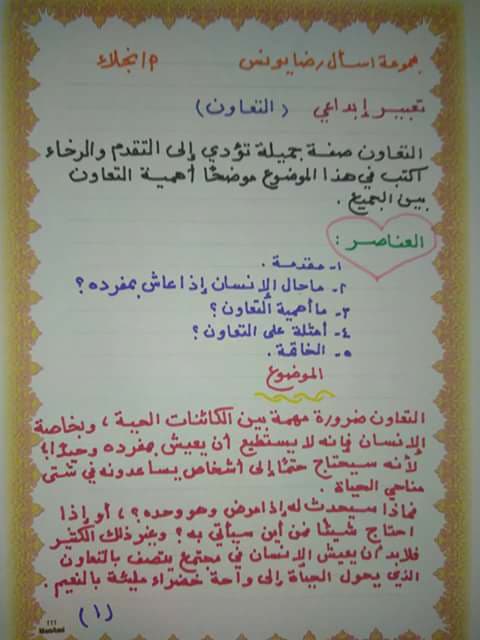 مجموعة اسأل رضا يونس م/نجلاء
تعبير إبداعي (التعاون)
التعاون صفة جميلة تؤدي إلى التقدم والرخاء
كتب في هذا الموضوع موضحًا أهمية التعاون
بين الجميع .
العناصر :
١- مقدمة .
٢- ماحال الإنسان إذا عاش بمفرده ؟
٣- ما أهمية التعاون ؟
٤- أمثلة على التعاون ؟
٥- الخاتمة .
الموضوع
التعاون ضرورة مهمة بين الكائنات الحية ، وبخاصة
الإنسان فإنه لا يستطيع أن يعيش بمفرده وحيدًا؛
لأنه سيحتاج حتمًا إلى أشخاص يساعدونه في شتى
مناحي الحياة .
فماذا سيحدث له إذا مرض وهو وحده ؟ ، أو إذا
احتاج شيئًا فمن أين سيأتي به ؟ وغير ذلك الكثير
فلابد أن يعيش الإنسان في مجتمع يتصف بالتعاون
الذي يحول الحياة إلى واحة خضراء مليئة بالنعيم .
(١)